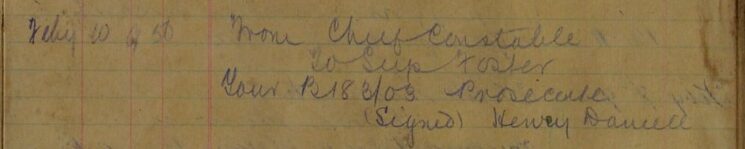 Feby 10 9 50 From Chief Constable
To Sup Foster
Your P183/03 Prosecute
(Signed) Henry Daniell